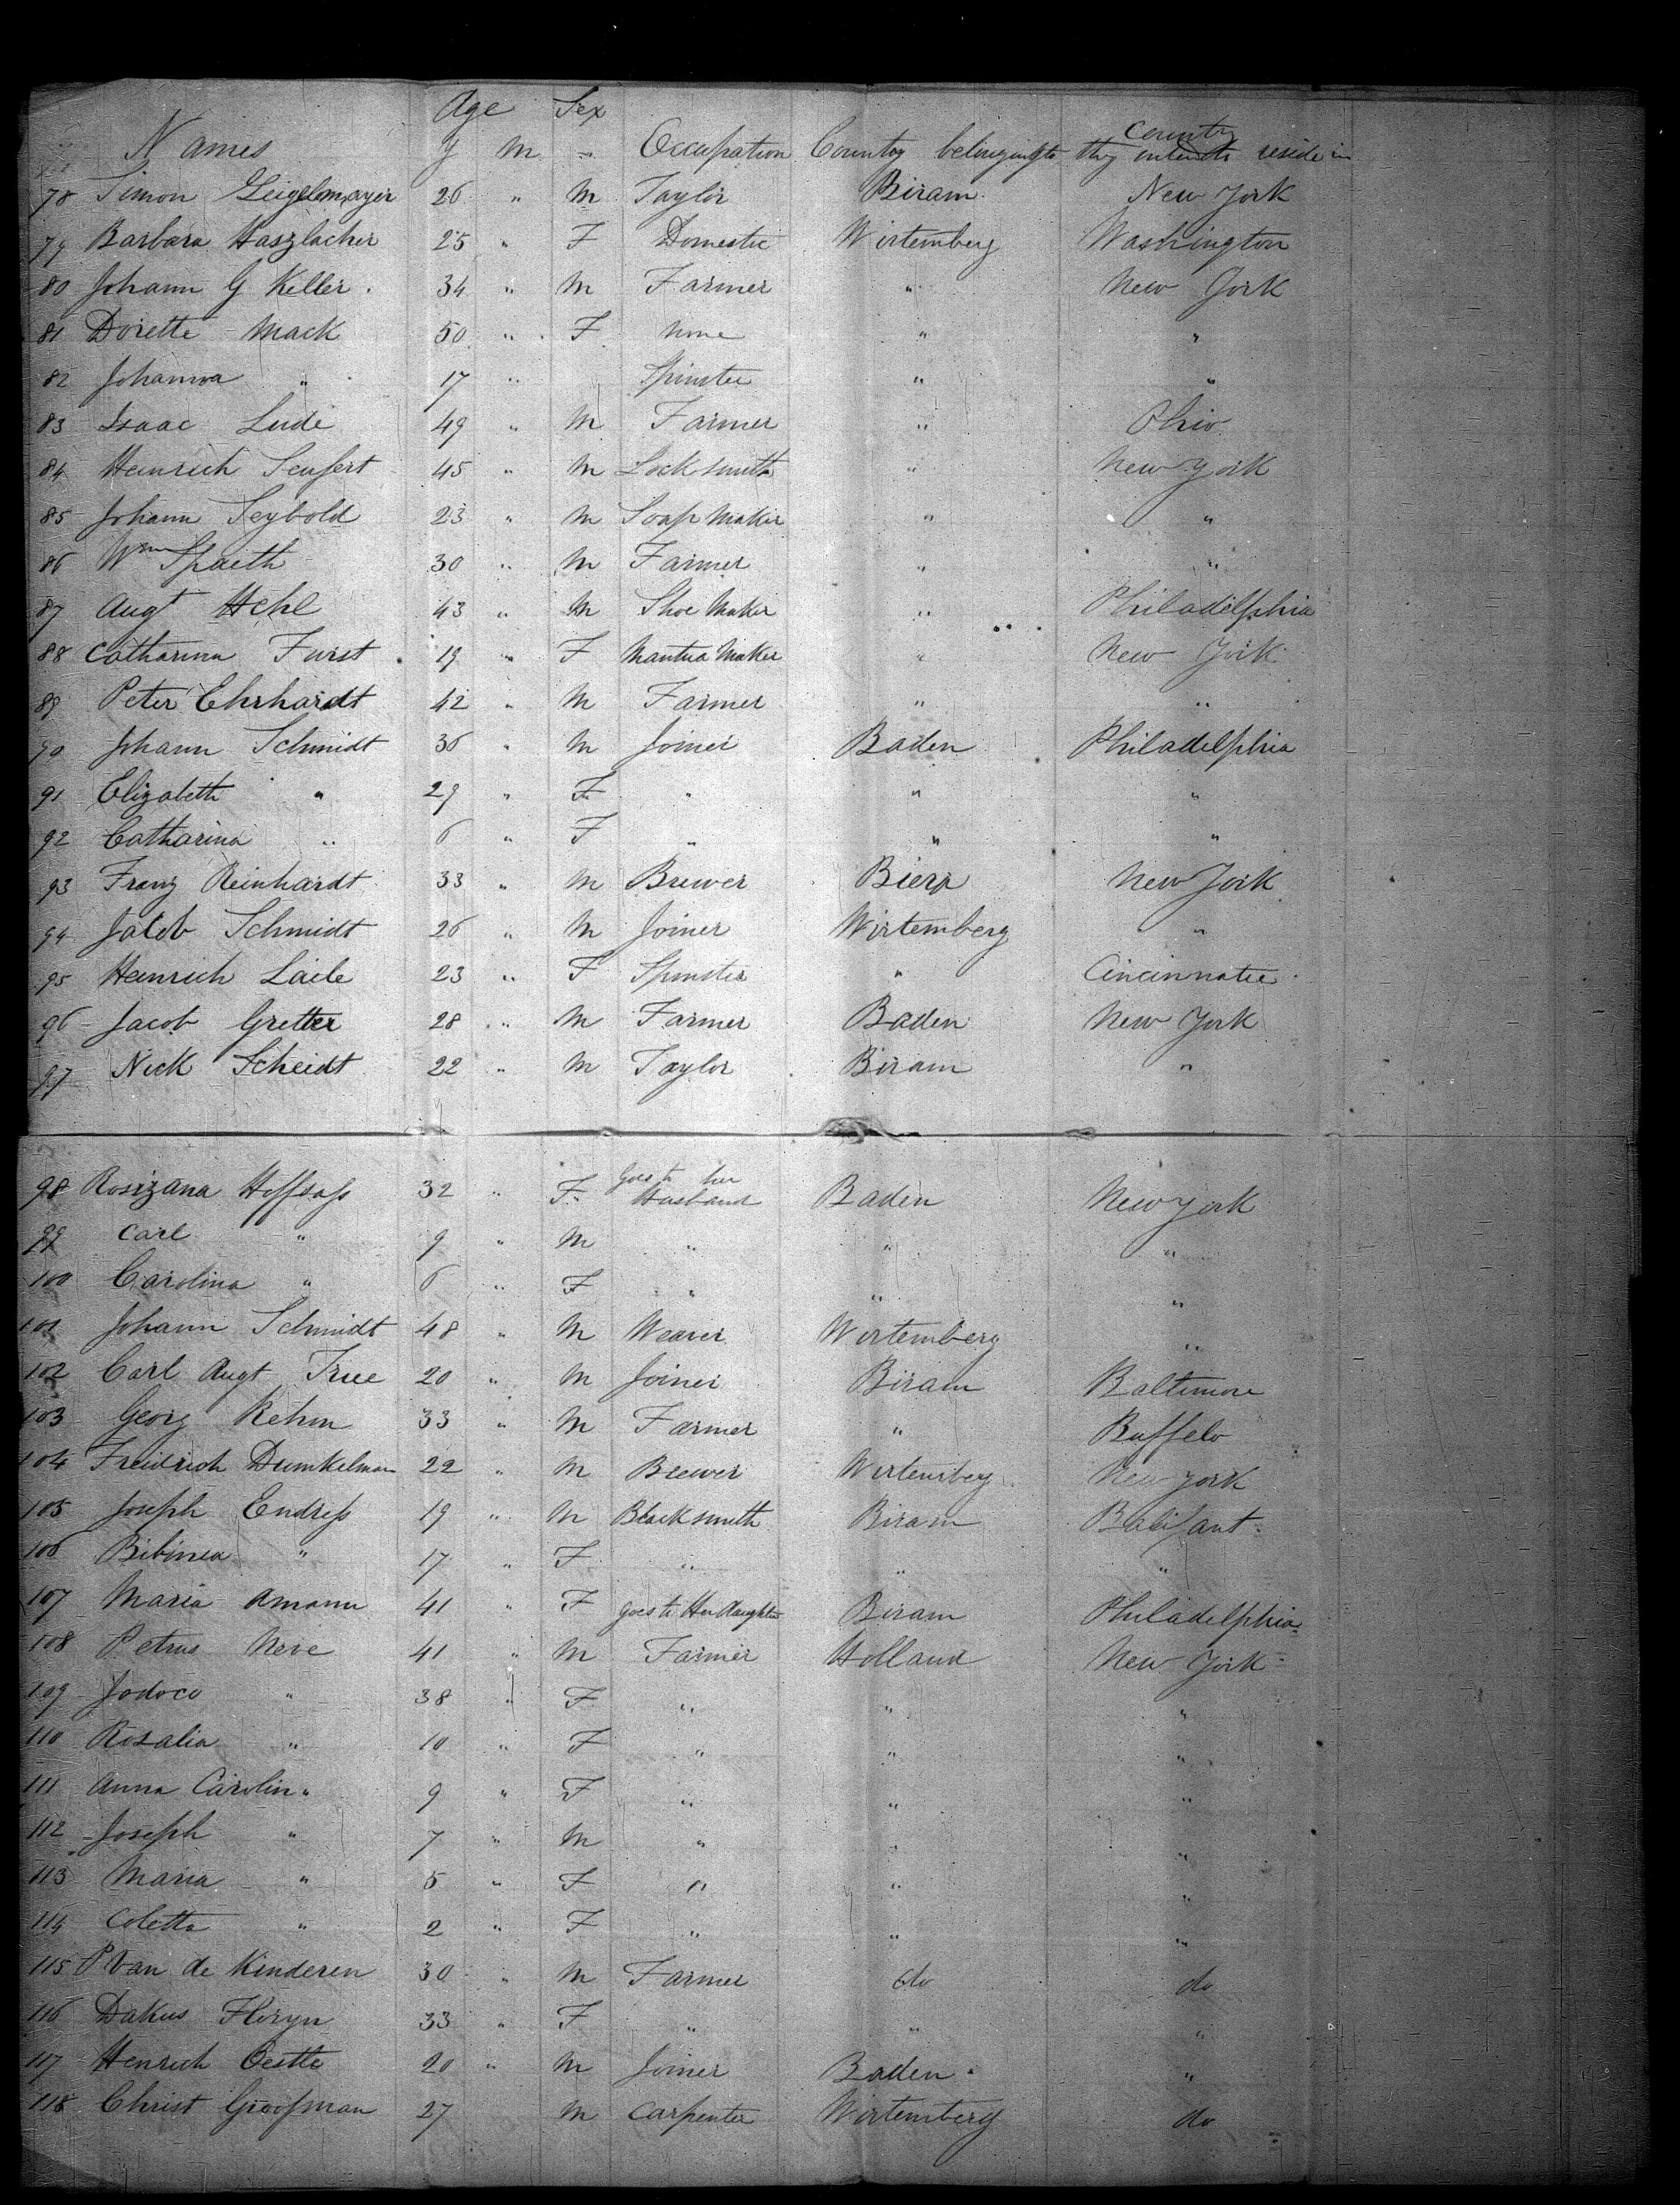 Age Sex
Names y m " Occupation Country belonging to they intend to reside in
country
78 Simon Geigelmayer 26 " M Taylor Biram New York
79 Barbara Haszlacher 25 " F Domestic Wirtemberg Washington
80 Johann G Keller 34 " M Farmer " New York
81 Dorette Mack 50 " F None " "
82 Johanna " 17 " Spinster " "
83 Isaac Lude 49 " M Farmer " Ohio
84 Heinrich Seufert 45 " M Lock smith " New York
85 Johann Seybold 23 " M Soap Maker " "
86 Wm Spaith 30 " M Farmer " "
87 Augt Hehl 43 " M Shoe Maker " Philadelphia
88 Catharina Furst 19 " F Mantua Maker " New York
89 Peter Ehrhardt 42 " M Farmer " "
90 Johann Schmidt 36 " M Joiner Baden Philadelphia
91 Elizabeth " 29 " F " " "
92 Catharina " 6 " F " " "
93 Franz Reinhardt 33 " M Brewer New York
94 Jacob Schmidt 26 " M Joiner Wirtemberg "
95 Heinrich Laile 23 " F Spinster " Cincinnatee
96 Jacob Gretter 28 " M Farmer Baden New York
97 Nick Scheidt 22 " M Taylor Biram "
98 Rosizana Hoffsass 32 " F Goes to her Husband Baden New York
99 Carl " 9 " M " " "
100 Carolina " 6 " F " " "
101 Johann Schmidt 48 " M Weaver Wirtemberg "
102 Carl Augt 20 " M Joiner Biram Baltimore
103 Georg Rehm 33 " M Farmer " Buffelo
104 Freidrich Dunkelman 22 " M Brewer Wirtemberg New York
105 Joseph Endress 19 " M Black smith Biram
106 " 17 " F " " "
107 Maria Amann 41 " F goes to Her daughter Biram Philadelphia
108 Petrus Neve 41 " M Farmer Holland New York
109 Jodoco " 38 " F " " "
110 Rosalia " 10 " F " " "
111 Anna Carolin " 9 " F " " "
112 Joseph " 7 " M " " "
113 Maria " 5 " F " " "
114 Coletta " 2 " F " " "
115 P Van de Kinderen 30 " M Farmer do do
116 Dakus Floryn 33 " F " " "
117 Henrich Oestle 20 " M Joiner Baden "
118 Christ Groossman 27 M Carpenter Wirtemberg do